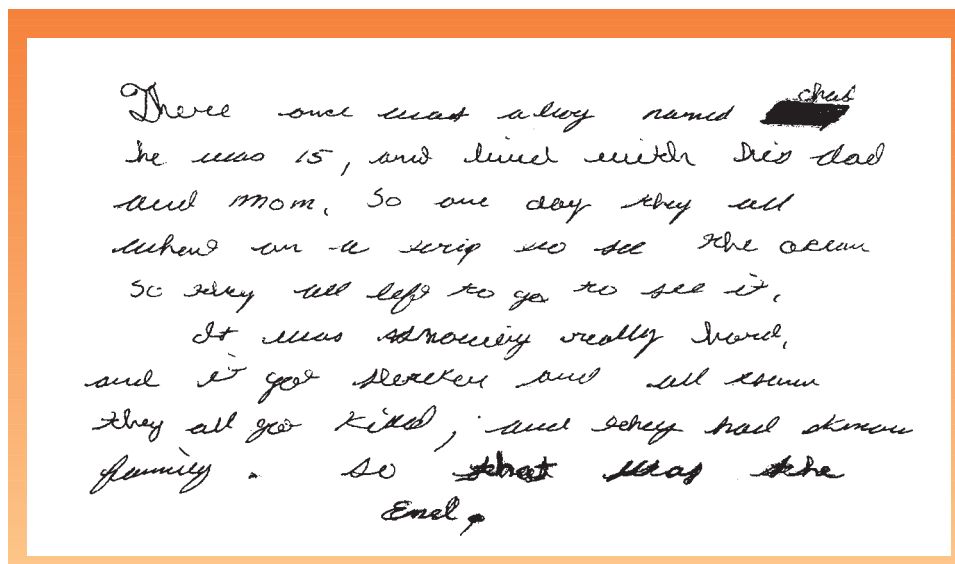 There once was a boy named
he was 15, and lived with his dad
and mom. So one day they all
whent on a trip to see the ocean
So they all left to go to see it.
It was snowing really hard,
and it got and all
they all got killd; and they had know
family. so that was the
End.